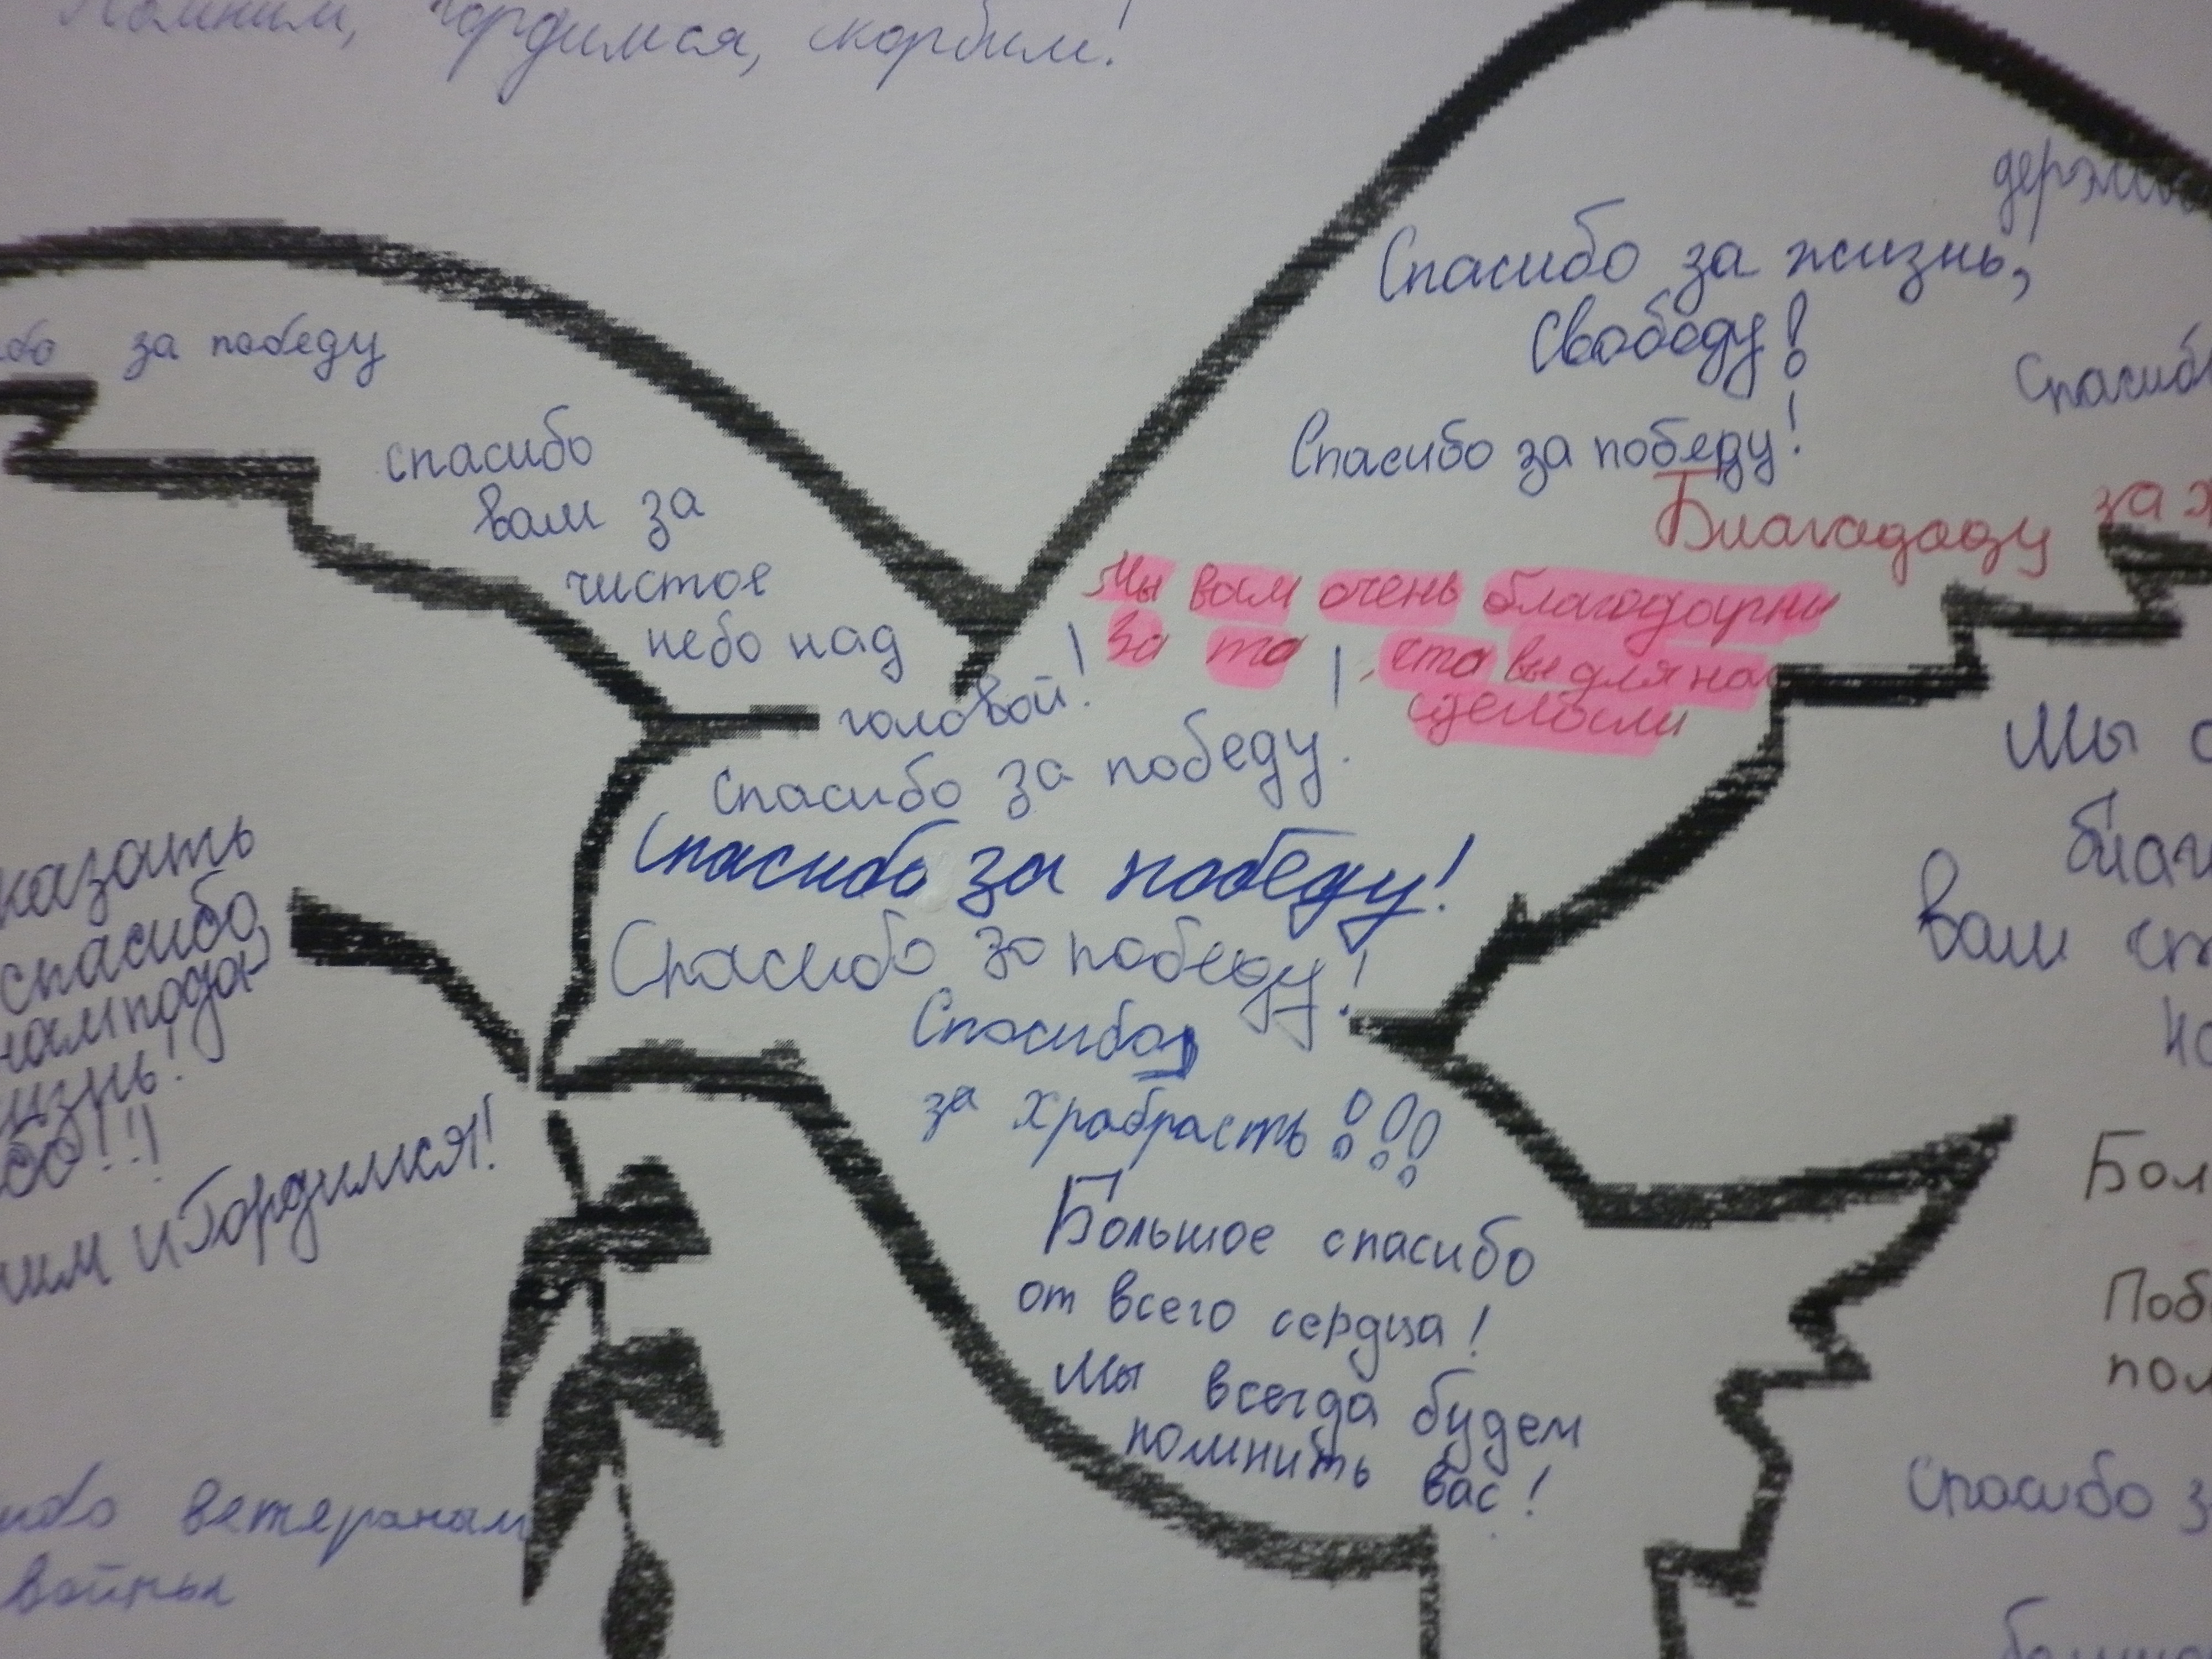 Помним, гордимся, скорбим!
Спасибо за жизнь,
Свободу!
за победу
Спасибо за победу!
спасибо
вам за
чистое
небо над
головой!
за
Мы вам очень благодарны
За то, что вы для нас
сделали
Спасибо за победу!
Спасибо за победу!
Спасибо за победу!
Спасибо
за храбрасть!!!
Большое спасибо
от всего сердца!
Мы всегда будем
помнить вас!
казать
спасибо,
нам пода-
изнь!
бо!!!
им и Гордимся!
ибо ветеранам
войны
Мы
благ
вам
Бол
Поб
пом
Спасибо з